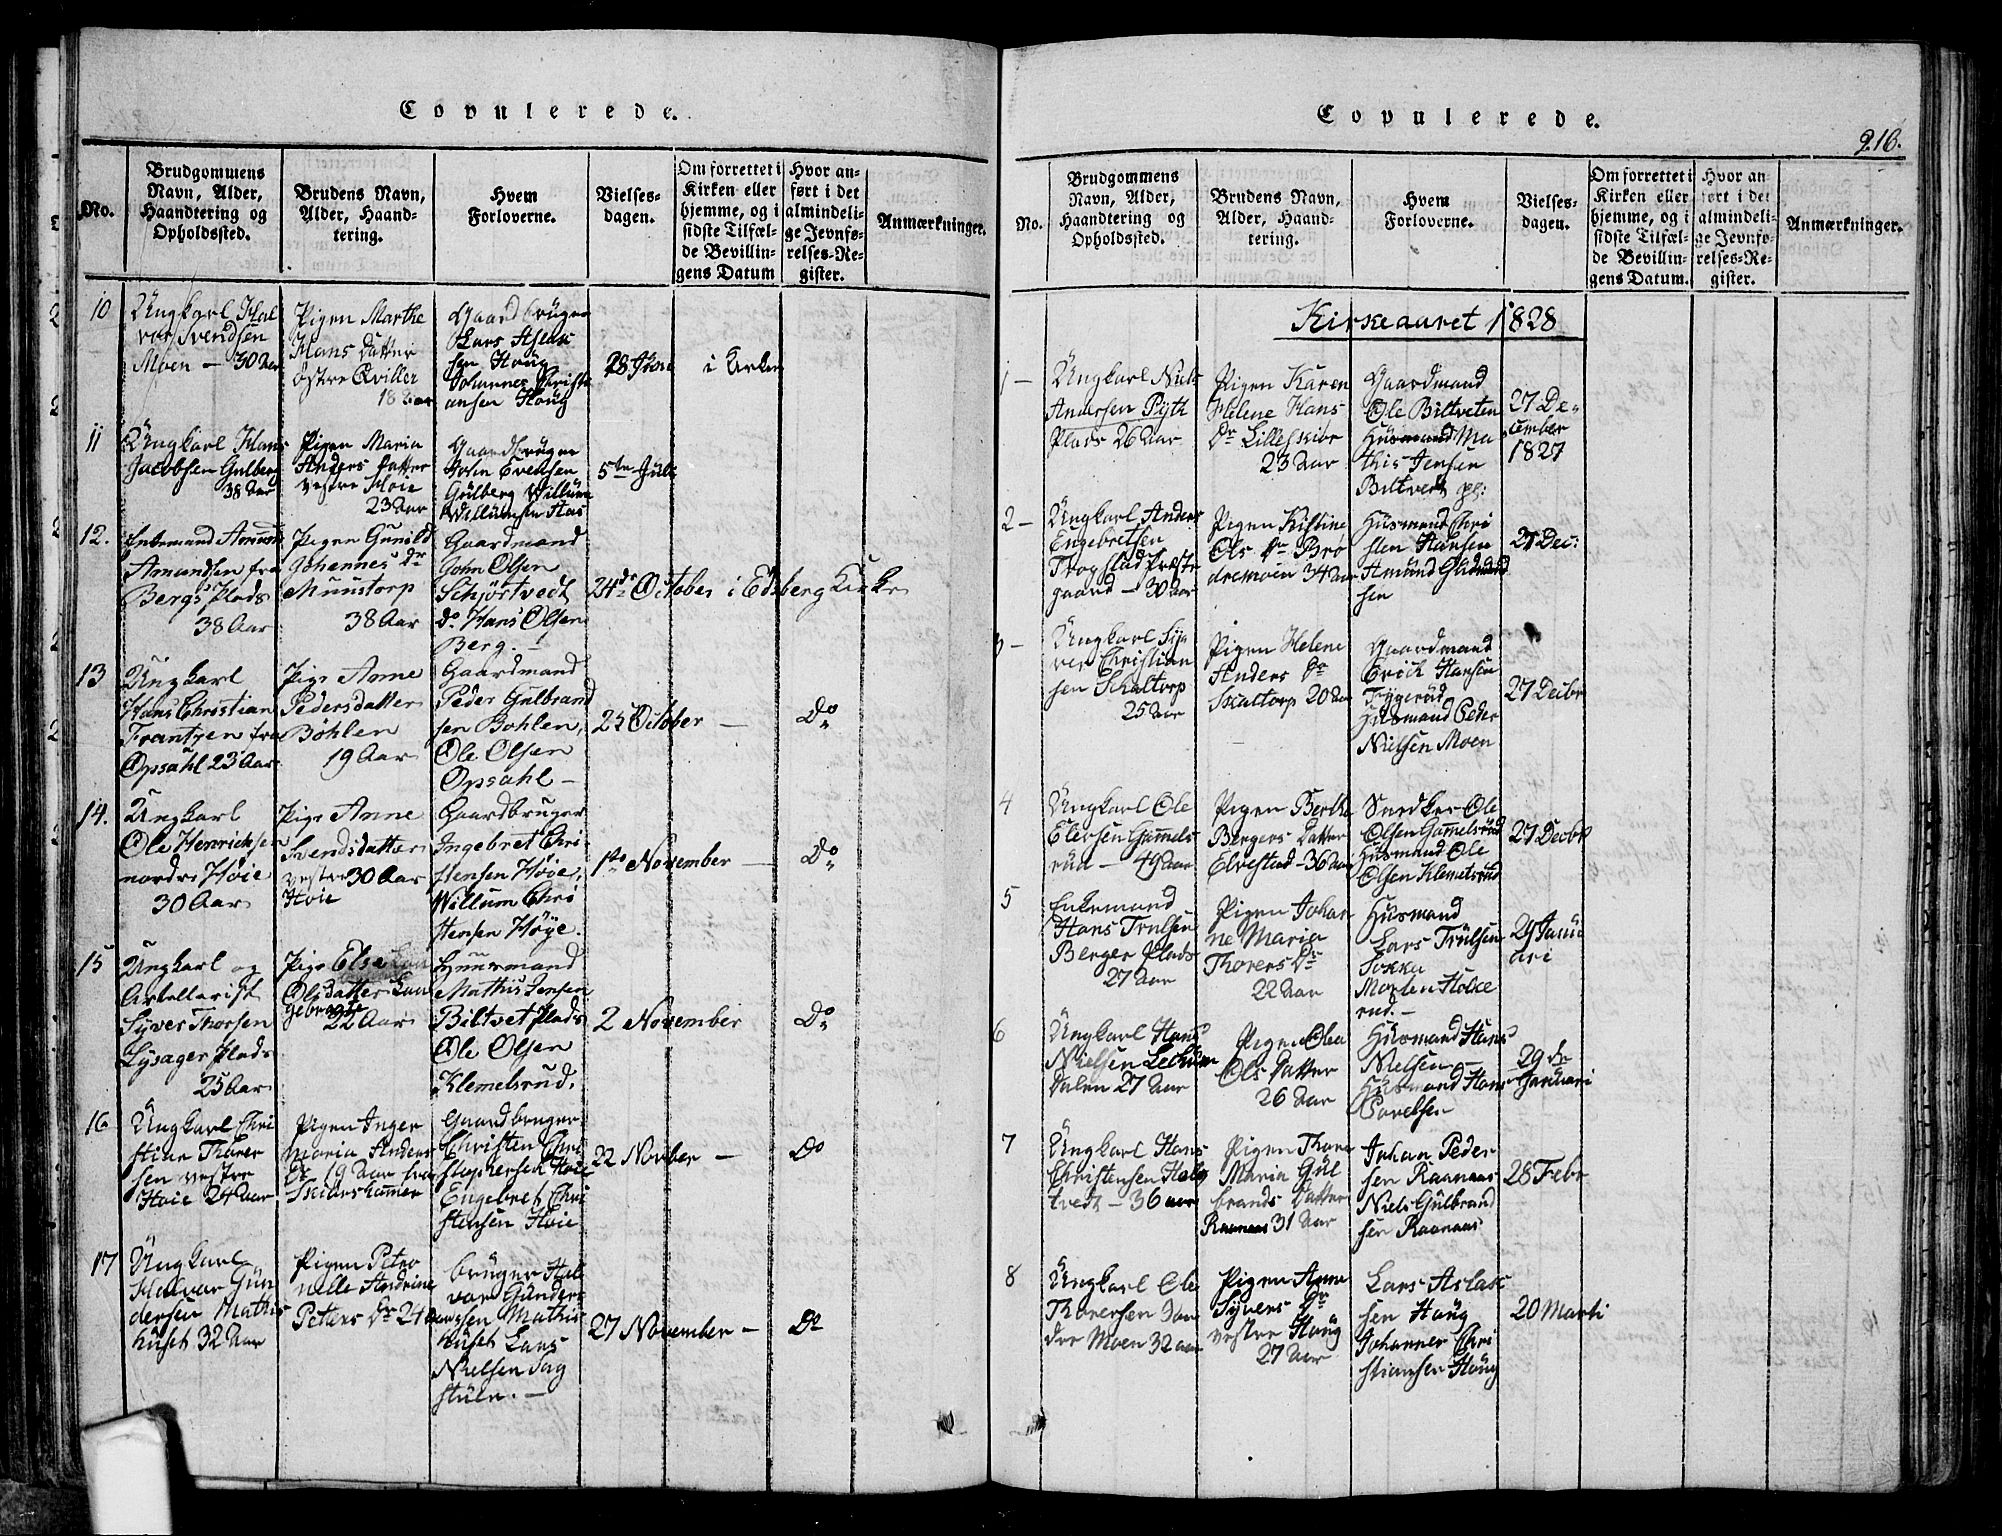 Copulerede.
No.
Brudgommens
Navn, Alder,
Haandtering og
Opholdssted.
Brudens Navn,
Alder, Haand-
tering.
Hvem
Forloverne.
Vielses-
dagen.
Om forrettet i
Kirken eller
hjemme, og i
sidste Tilfæl-
de Bevillin-
gens Datum
Hvor an-
ført i det
almindeli-
ge Jevnfø-
relses-Re-
gister.
Anmærkninger.
10
Ungkarl Hal
vor Svendsen
Moen — 30 Aar
Pigen Marthe
Hans Datter
østre Qviller
18 Aar
Gaardbruger
Lars Aslak
sen Haug
Johannes Christi
ansen Haug
28 June
i Kirken
11
Ungkarl Hans
Jacobsen Gulberg
38 Aar
Pigen Maria
Anders Datter
vestre Høie
23 Aar
Gaardbruger
John Evensen
Gulberg Willum
Willumsen Aas
5te Juli
12.
Enkemand Amund
Amundsen fra
Bergs Plads
38 Aar
Pigen Gunild
Johannes dr
Munstorp
38 Aar
Gaardmand
John Olsen
Schjørtvedt
do Hans Olsen
Berg. —
24de October i Edsberg Kirke
13
Ungkarl
Hans Christian
Frantzen fra
Opsahl 23 Aar
Pige Anne
Pedersdatter
Bøhlen
19 Aar
Gaardmand
Peder Gulbrand
sen Bohlen,
Ole Olsen
Opsahl —
25 October —
Do
14.
Ungkarl
Ole Henrichsen
nordre Høie
30 Aar
Pige Anne
Svendsdatter
vestre 30 Aar
Høie
Gaardbruger
Ingebret Chri
stensen Høie,
Willum Chri
stensen Høye.
1ste November —
Do
15
Ungkarl og
Artellerist
Syver Thorsen
Lysager Plads
25 Aar
Pige Else
Olsdatter
22 Aar
Huusmand
Mathis Jensen
Biltvet Plads
Ole Olsen
Klemelsrud.
2 November
Do
16
Ungkarl Chri
stian Thorer
sen vestre
Høie 24 Aar
Pigen Inger
Maria Anders
Dr 19 Aar fra
Gaardbruger
Christen Chri
stophersen Høie
Engebret Chri
stensen Høie
22 Novber —
Do
17
Ungkarl
Halvor Gun
dersen Mathis
huset 32 Aar
Pigen Petro
nelle Andrine
Petters Dr 24 Aar
bruger Hal
vor Gunders
sen Mathis
huset Lars
Nielsen Sag
stuen. —
27 November —
Do
Copulerede.
216.
No.
Brudgommens
Navn, Alder,
Haandtering og
Opholdssted.
Brudens Navn,
Alder, Haand-
tering.
Hvem
Forloverne.
Vielses-
dagen.
Om forrettet i
Kirken eller
hjemme, og i
sidste Tilfæl-
de Bevillin-
gens Datum.
Hvor an-
ført i det
almindeli-
ge Jevnfø-
relses-Re-
gister.
Anmærkninger.
Kirkeaaret 1828
1 —
Ungkarl Niels
Andersen Pyth
Plads 26 Aar
Pigen Karen
Helene Hans
Dr Lilleskibr
23 Aar
Gaardmand
Ole Biltveten
Husmand Ma
this Jensen
Biltvedt pl:
27 De-
cember
1827
2 —
Ungkarl Anders
Engebretsen
Trøgstad Præste
gaard — 30 Aar
Pigen Kistine
Ols Dr Brø
dremoen 34 Aar
Husmand Chri
sten Hansen
Amund Gudmund
sen
27 Dec:
3 —
Ungkarl Sy
ver Christian
sen Skaltorp
25 Aar
Pigen Helene
Anders Dr
Skaltorp 20 Aar
Gaardmand
Erich Hansen
Frygerød
Husmand Peder
Nielsen Moen
27 Decbr
4
Ungkarl Ole
Elevsen Gammels
rud — 49 Aar
Pigen Berthe
Bergers Datter
Elvestad — 36 Aar
Snedker Ole
Olsen Gammelsrud
Husmand Ole
Olsen Klemelsrud
27 Decbr
5
Enkemand
Hans Trulsen
Berger Plads
27 Aar
Pigen Johan
ne Maria
Thorers Dr
22 Aar
Husmand
Lars Trulsen
Sokka
Morten Holke
rud. —
29 Janu
ari
6
Ungkarl Hans
Nielsen Lechum
Dalen 27 Aar
Pigen Olea
Ols Datter
26 Aar
Husmand Hans
Nielsen —
Husmand Hans
Povelsen
29 de
Januari
7
Ungkarl Hans
Christensen Haly
tvedt — 36 aar
Pigen Thore
Maria Gul
brands Datter
Raanaas 31 Aar
Johan Peder
sen Raanaas
Niels Gulbrand
sen Raanaas
28 Febr
8
Ungkarl Ole
Thorersen Søn
dre Moen 32 aar
Pigen Anne
Syvers Dr
vestre Haug
27 Aar
Lars Aslak
sen Haug
Johannes Chri
stiansen Haug
20 Marti